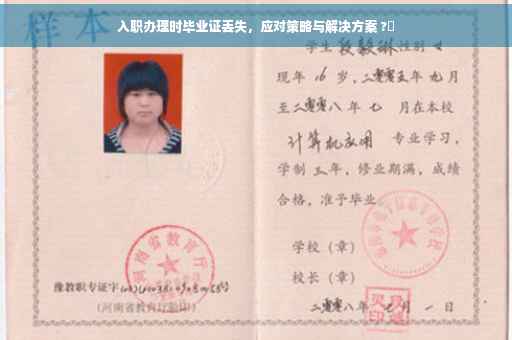 入职办理时毕业证丢失，应对策略与解决方案 ?
样本
学生 段毅琳 性别 女
现年 16 岁，二零零五年 九 月
至二零零八 年 七 月在本校
计算机应用 专业学习，
学制 三 年，修业期满，成绩
合格，准予毕业
学校（章）
校长（章）
二零零八年 月 一 日
河南省教育厅
豫教职专证字
(河南省教育厅验印)